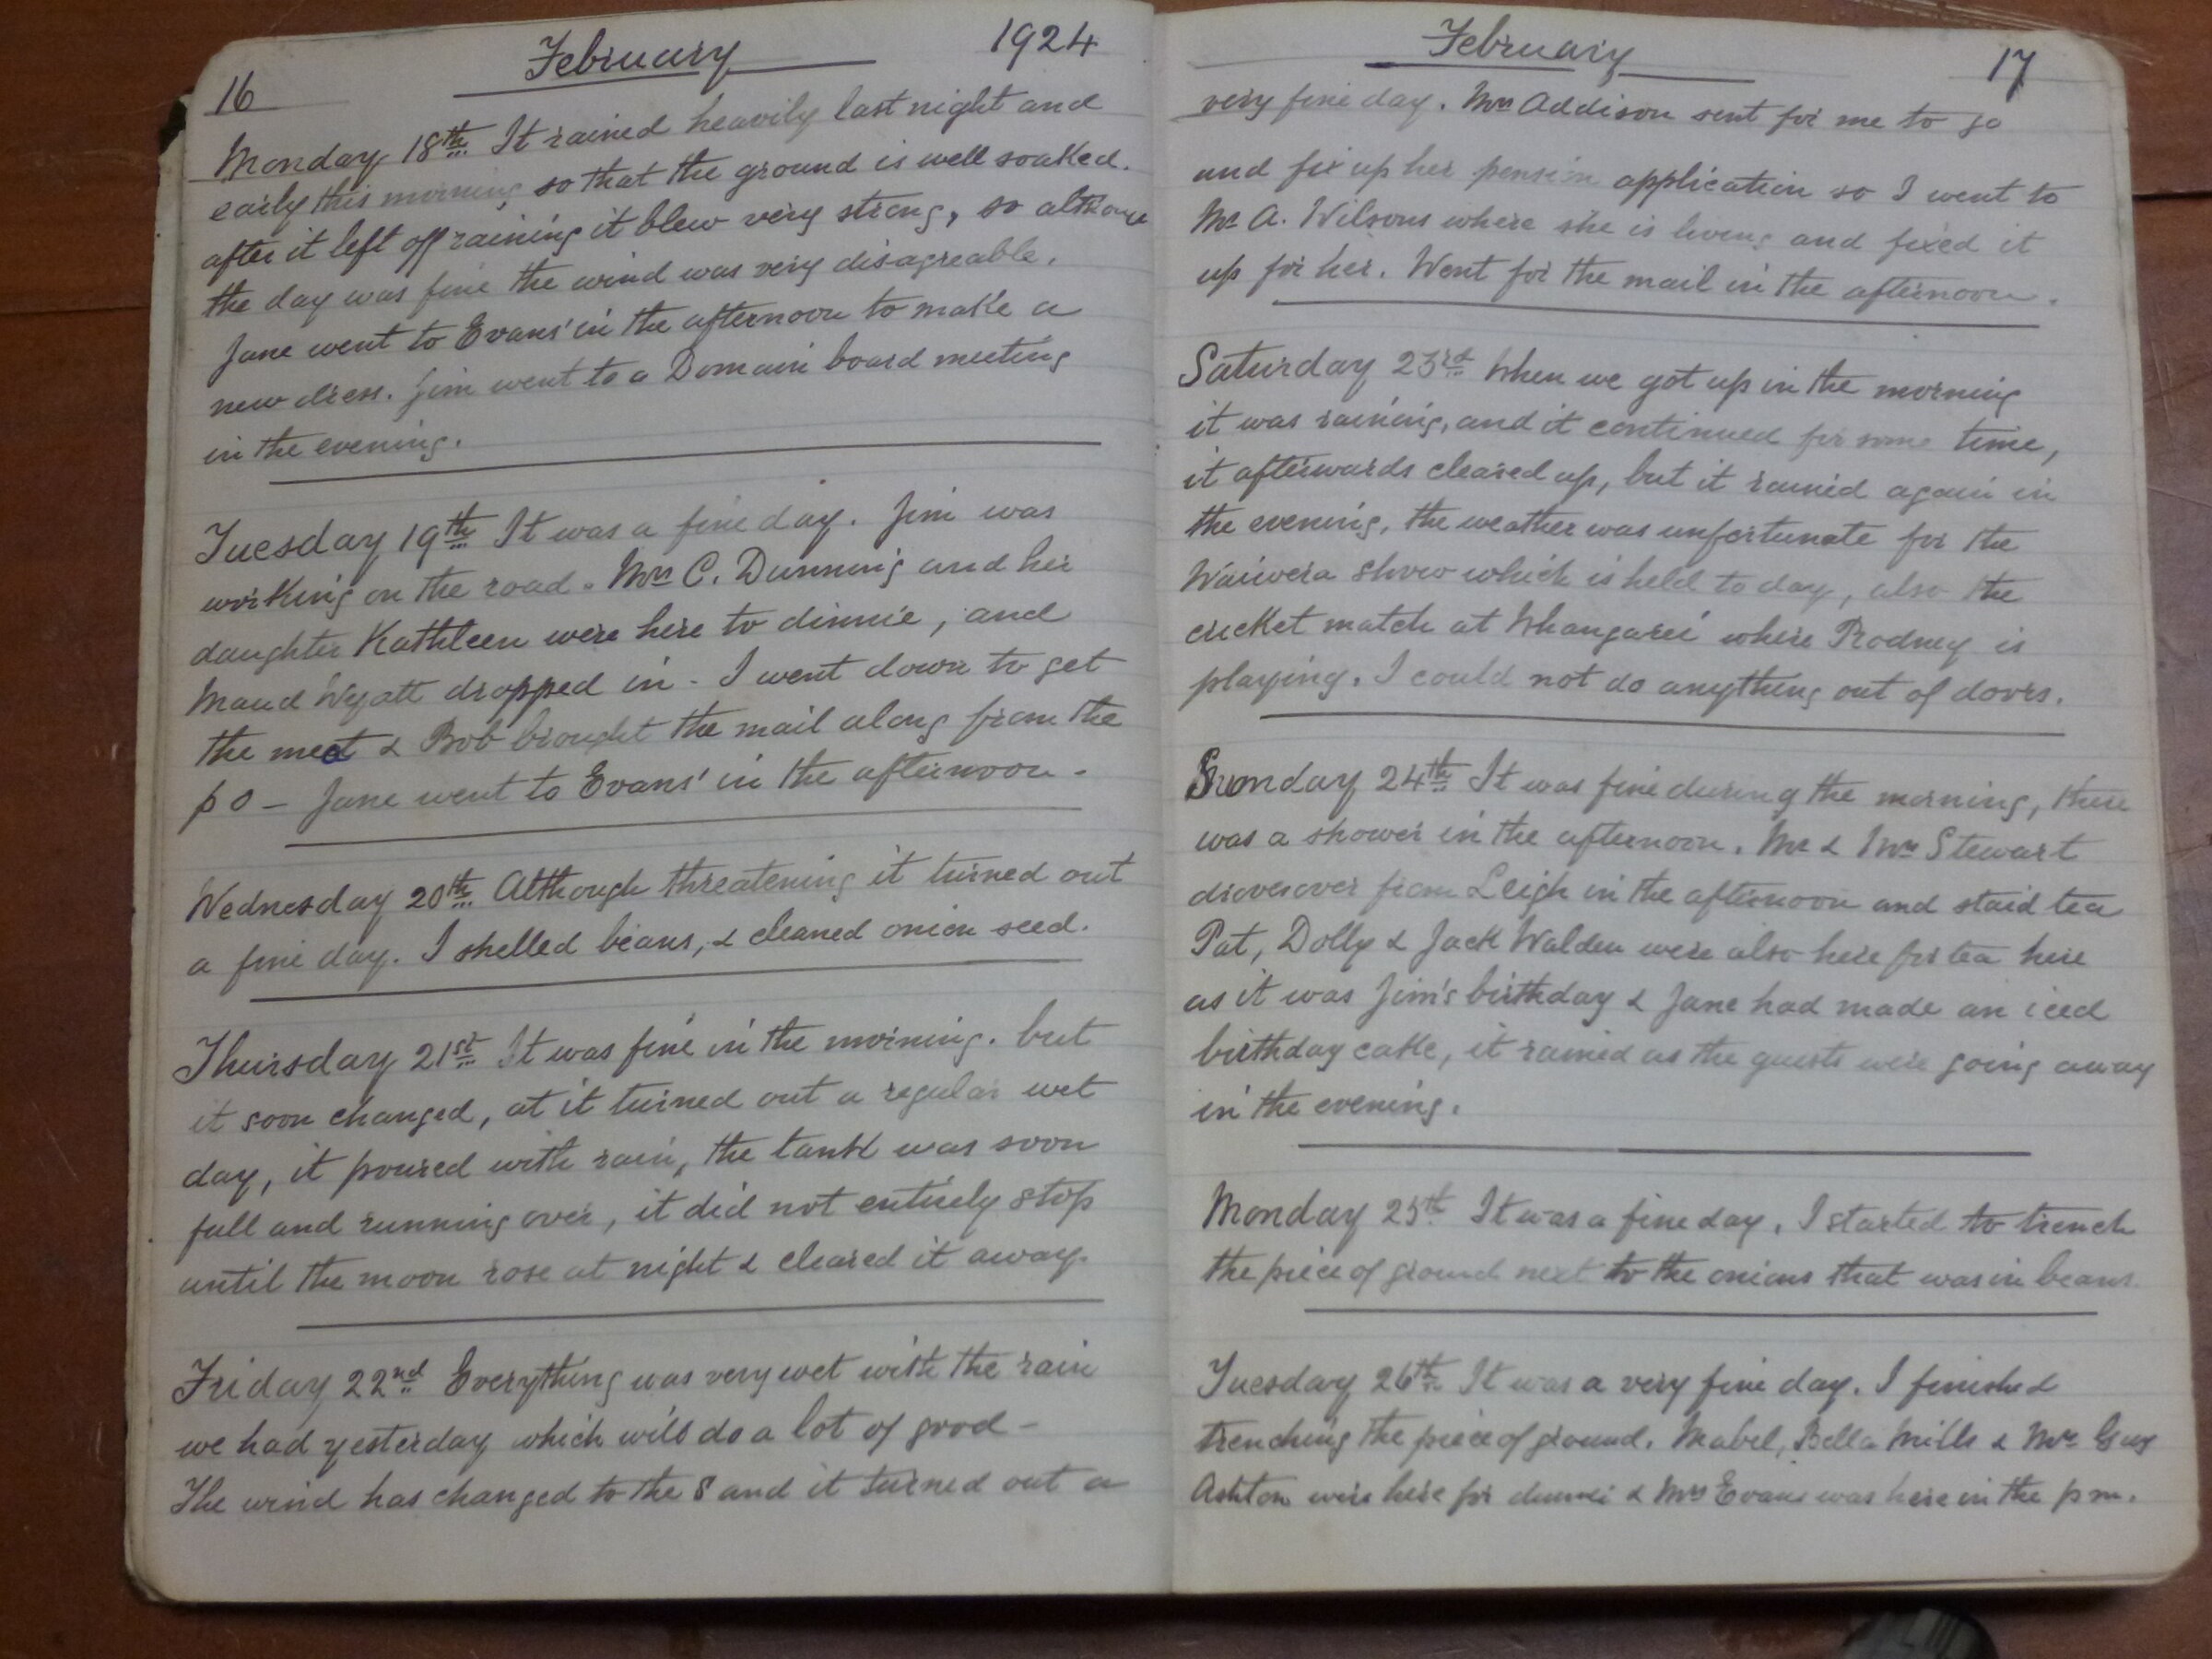 16 February 1924
Monday 18th It rained heavily last night and
early this morning so that the ground is well soaked.
after it left off raining it blew very strong, so although
the day was fine the wind was very disagreable.
Jane went to Evans' in the afternoon to make a
new dress. Jim went to a Domain board meeting
in the evening.
Tuesday 19th It was a fine day. Jim was
working on the road. Mrs C. Dunning and her
daughter Kathleen were here to dinner, and
Maud Wyatt dropped in - I went down to get
the meat & Bob brought the mail along from the
p o - Jane went to Evans' in the afternoon -
Wednesday 20th Although threatening it turned out
a fine day. I shelled beans, & cleaned onion seed.
Thursday 21st It was fine in the morning. but
it soon changed, at it turned out a regular wet
day, it poured with rain, the tank was soon
full and running over, it did not entirely stop
until the moon rose at night & cleared it away.
Friday 22nd Everything was very wet with the rain
we had yesterday which will do a lot of good -
The wind has changed to the S and it turned out a
February 17
very fine day. Mrs Addison sent for me to go
and fix up her pension application so I went to
Mr A. Wilsons where she is living and fixed it
up for her. Went for the mail in the afternoon.
Saturday 23rd When we got up in the morning
it was raining, and it continued for some time,
it afterwards cleared up, but it rained again in
the evening, the weather was unfortunate for the
Waiwera show which is held to day, also the
cricket match at Whangarei where Rodney is
playing. I could not do anything out of doors.
Sunday 24th It was fine during the morning, there
was a shower in the afternoon. Mr & Mrs Stewart
drove over from Leigh in the afternoon and staid tea
Pat, Dolly & Jack Walden were also here for tea here
as it was Jim's birthday & Jane had made an iced
birthday cake, it rained as the guests were going away
in the evening.
Monday 25th It was a fine day. I started to trench
the piece of ground next to the onions that was in beans.
Tuesday 26th It was a very fine day. I finished
trenching the piece of ground. Mabel, Bella Mills & Mrs Guy
Ashton were here for dinner & Mrs Evans was here in the p m.